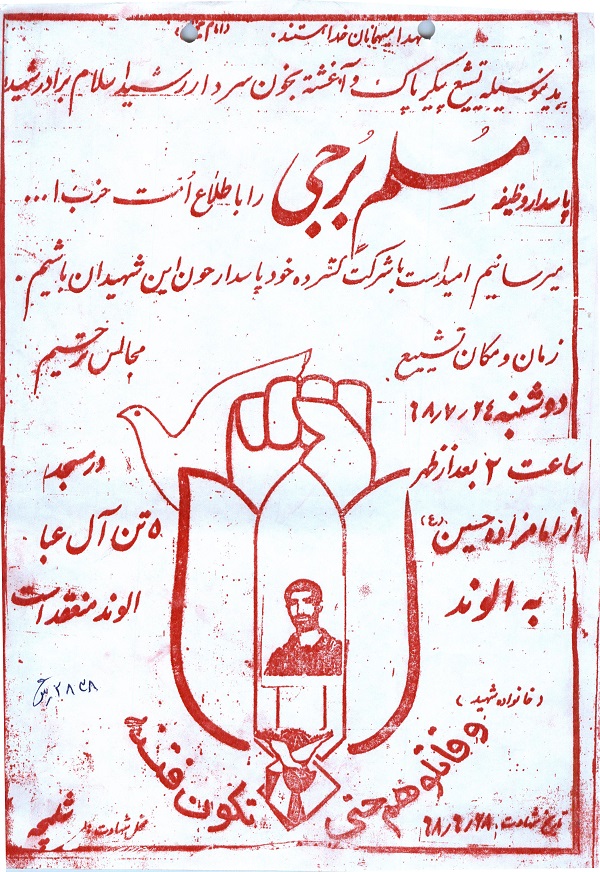 شهدا میهمانان خدا هستند. (امام خمینی)
بدینوسیله تشییع پیکر پاک و آغشته بخون سردار رشید اسلام برادر شهید
پاسدار وظیفه مسلم برجی را با طلاع امت حزب ا...
میرسانیم امید است با شرکت گسترده خود پاسدار خون این شهیدان باشیم.
زمان و مکان تشییع
دوشنبه ۶۸/۷/۲۴
ساعت ۲ بعد از ظهر
از امامزاده حسین (ع)
به الوند
مجالس ترحیم
در مسجد
۵ تن آل عبا
الوند منعقد است
(خانواده شهید)
و قاتلوهم حتی
تکون فتنه
تاریخ شهادت: ۶۸/۶/۲۸
محل شهادت: شلمچه